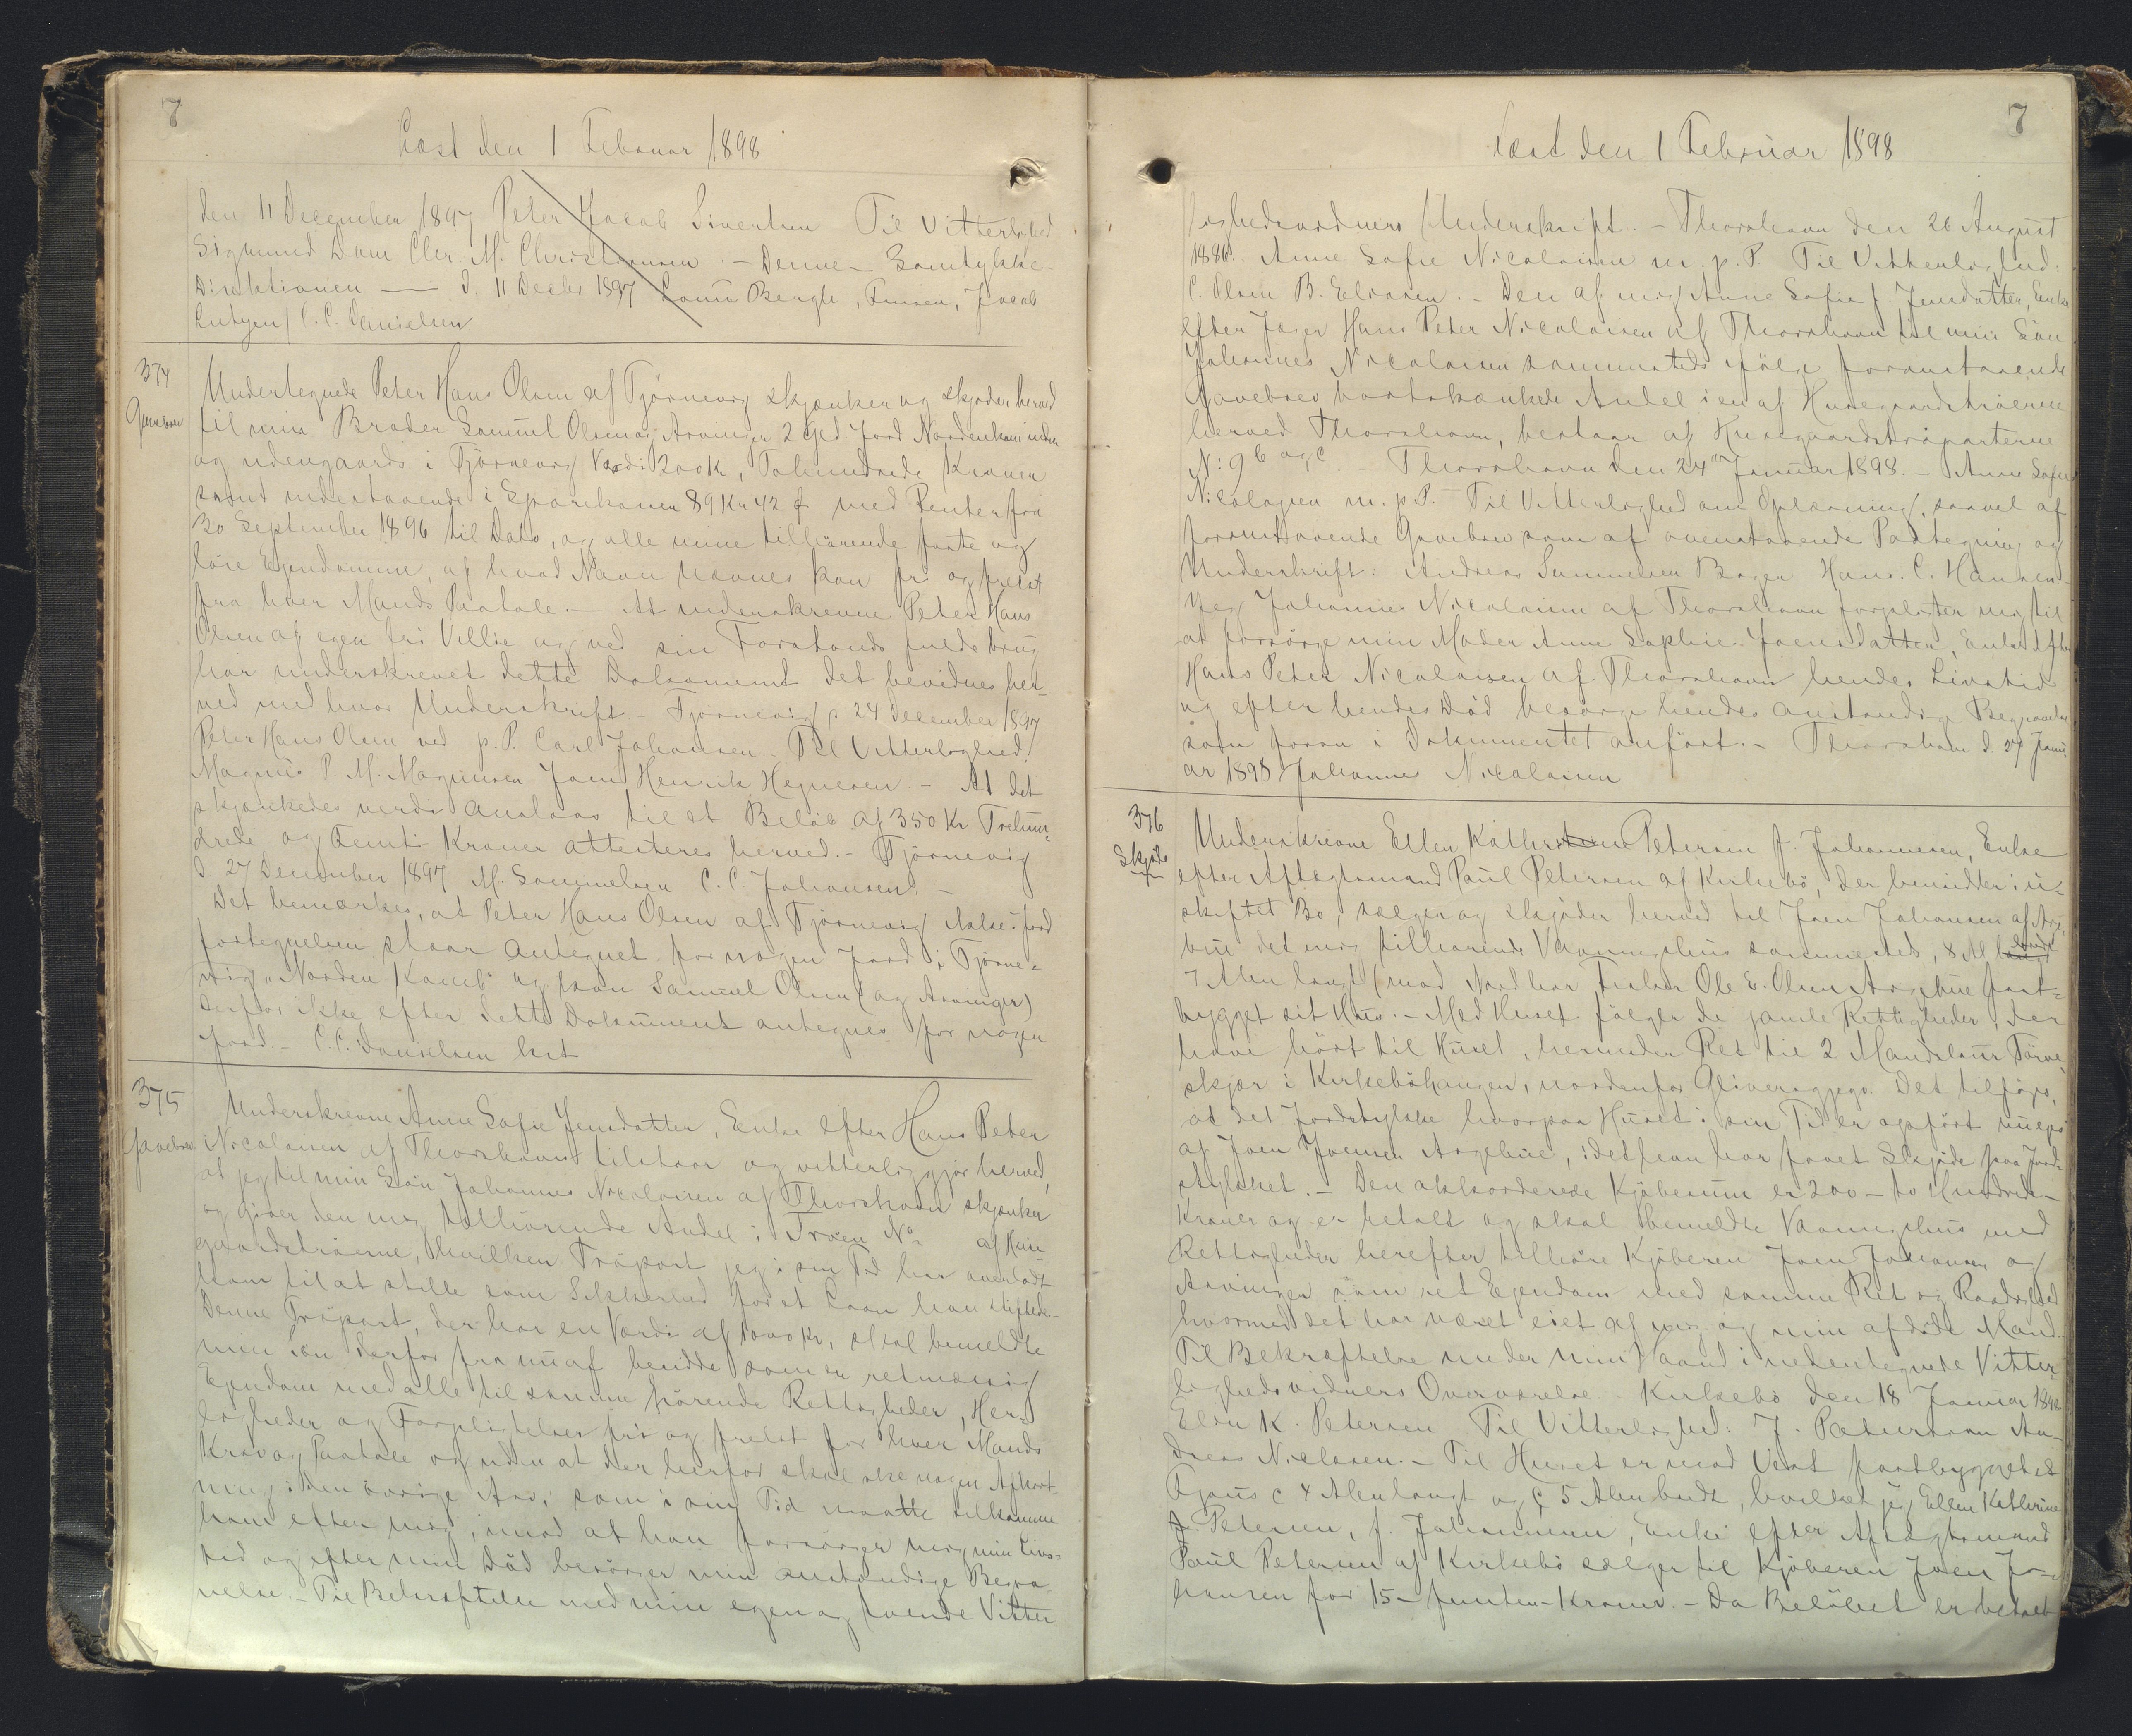 7
Læst den 1 Februar 1898
den 11 December 1897 Peter Jacob Sivertsen Til Vitterlighed
Sigmund Dam Chr. M. Christiansen. - Denne - Samtykke
Direktionen — d. 11 Decbr 1897 Bærgh, Jacob
Lützen / C. C. Danielsen
374
Gavebrev
Undertegnede Peter Hans Olsen af Tjörnevig skjænker og skjøder herved
til min Broder Samuel Olsen og Arvinger 2 Gld Jord Nordenkam inden
og udengaards i Tjörnevig Værdi 200 Kr, Tohundrede Kroner
samt indestaaende i Sparekassen 89 Kr 42 Ø med Renter fra
30 September 1896 til Dato, og alle mine tilhörende faste og
löse Ejendomme, af hvad Navn nævnes kan fri og frelst
fra hver Mands Paatale. - At underskrevne Peter Hans
Olsen af egen fri Villie og ved sin Forstands fulde brug
har underskrevet dette Dokument det bevidnes her-
ved med hvor Underskrift - Tjörnevig p. 24 December 1897
Peter Hans Olsen ved p. P. Carl Johansen. Til Vitterlighed:
Magnus P. M. Magnusen Joen Henrik Hegnesen. - At det
skjænkedes værdi anslaas til et Beløb af 350 Kr Trehun-
drede og Femti Kroner attesteres herved. - Tjörnevig
d. 27 December 1897 M. Samuelsen C. C. Johansen. -
Det bemærkes, at Peter Hans Olsen af Tjörnevig ikke i Jord
fortegnelsen staar antegnet for nogen Jord i Tjörne-
vig „Norden Kamb" og kan Samuel Olsen (og Arvinger)
derfor ikke efter dette Dokument antegnes for nogen
Jord. - C. C. Danielsen kst
375
Gavebrev
Underskrevne Anne Sofie Jensdatter, Enke efter Hans Peter
Nicolaisen af Thorshavn tilstaar og vitterliggjör herved,
at jeg til min Sön Johannes Nicolaisen af Thorshavn skjænker
og giver den mig tilhörende Andel i Tröen No af Huse
gaardströerne, hvilken Tröpart jeg i sin Tid har overladt
ham til at stille som Sikkerhed for et Laan han stiftede.
Denne Tröpart, der har en Værdi af 1000 Kr, skal bemeldte
min Sön derfor fra nu af besidde som en retmæssig
Ejendom med alle til samme hörende Rettigheder, Her-
ligheder og Forpligtelser fri og frelst for hver Mands
Krav og Paatale og uden at der herfor skal ske nogen Afkort-
ning i den övrige Arv, som i sin Tid maatte tilkomme
ham efter mig, imod at han forsörger mig min Livs-
tid og efter min Död besörger min anstændige Begra-
velse. - Til Bekræftelse med min egen og tvende Vitter
7
Læst den 1 Februar 1898
lighedsvidners Underskrift. - Thorshavn den 26 August
1886. Anne Sofie Nicolaisen m. p. P. Til Vitterlighed:
C. Olsen B. Eliasen. - Den af mig Anne Sofie f. Jensdatter, Enke
efter Jæger Hans Peter Nicolaisen af Thorshavn til min Sön
Johannes Nicolaisen sammesteds ifölge foranstaaende
Gavebrev bortskænkede Andel i en af Husegaardströerne
herved Thorshavn, bestaar af Husegaardströparterne
N: 9 b og c. - Thorshavn den 24 Januar 1898. - Anne Sofie
Nicolaisen m. p. P. - Til Vitterlighed om Oplæsning, saavel af
foranstaaende Gavebrev som af ovenstaaende Paategning og
Underskrift: Andreas Samuelsen Bager Hans. C. Hansen
Jeg Johannes Nicolaisen af Thorshavn forpligter mig til
at forsörge min Moder Anne Sophie Joensdatter, Enke efter
Hans Peter Nicolaisen af Thorshavn hendes Livstid
og efter hendes Död besörge hendes anstændige Begravelse
som foran i Dokumentet anfört. - Thorshavn d. 27 Janu
ar 1898 Johannes Nicolaisen
376
Skjöde
Underskrevne Ellen Kathrine Petersen f. Johannesen, Enke
efter Aftægtsmand Paul Petersen af Kirkebö, der besidder i u-
skiftet Bo, sælger og skjöder herved til Joen Johansen af Arge-
bue det mig tilhörende Vaaningshus sammesteds, 8 Al bredt
7 Alen langt (mod Nord har Ole E. Olsen Argebue fast-
bygget sit Hus. - Med Huset fölger de gamle Rettigheder, der
have hört til Huset, herunder Ret til 2 Mandslaur Törve-
skjær i Kirkeböhaugen, nordenfor Det tilföjes,
at det Jordstykke hvorpaa Huset i sin Tid er opfört nu ejes
af Joen Joensen Argebue, idet han har faaet Skjöde paa Jord-
stykket. - Den akkorderede Kjöbesum er 200 - to Hundrede
Kroner og er betalt og skal bemeldte Vaaningshus med
Rettigheder herefter tilhöre Kjöberen Joen Johansen og
Arvinger som ret Ejendom med samme Ret og Raadighed
hvormed det har været eiet af mig og min afdöde Mand.
Til Bekræftelse under min Haand i nedentegnede Vitter-
lighedsvidners Overværelse. - Kirkebö den 18 Januar 1898
Ellen K. Petersen Til Vitterlighed: J. Patursson An-
dreas Niclasen. - Til Huset er mod Vest fastbygget et
Hjaus c 4 Alen langt og c 5 Alen bredt, hvilket jeg Ellen Kathrine
Petersen, f. Johannesen, Enke efter Aftægtsmand
Paul Petersen af Kirkebö sælger til Kjöberen Joen Jo-
hansen for 15 - femten - Kroner. - Da Belöbet er betalt